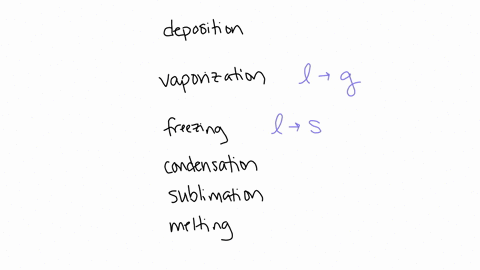 deposition
vaporization l → g
freezing l → s
condensation
sublimation
melting